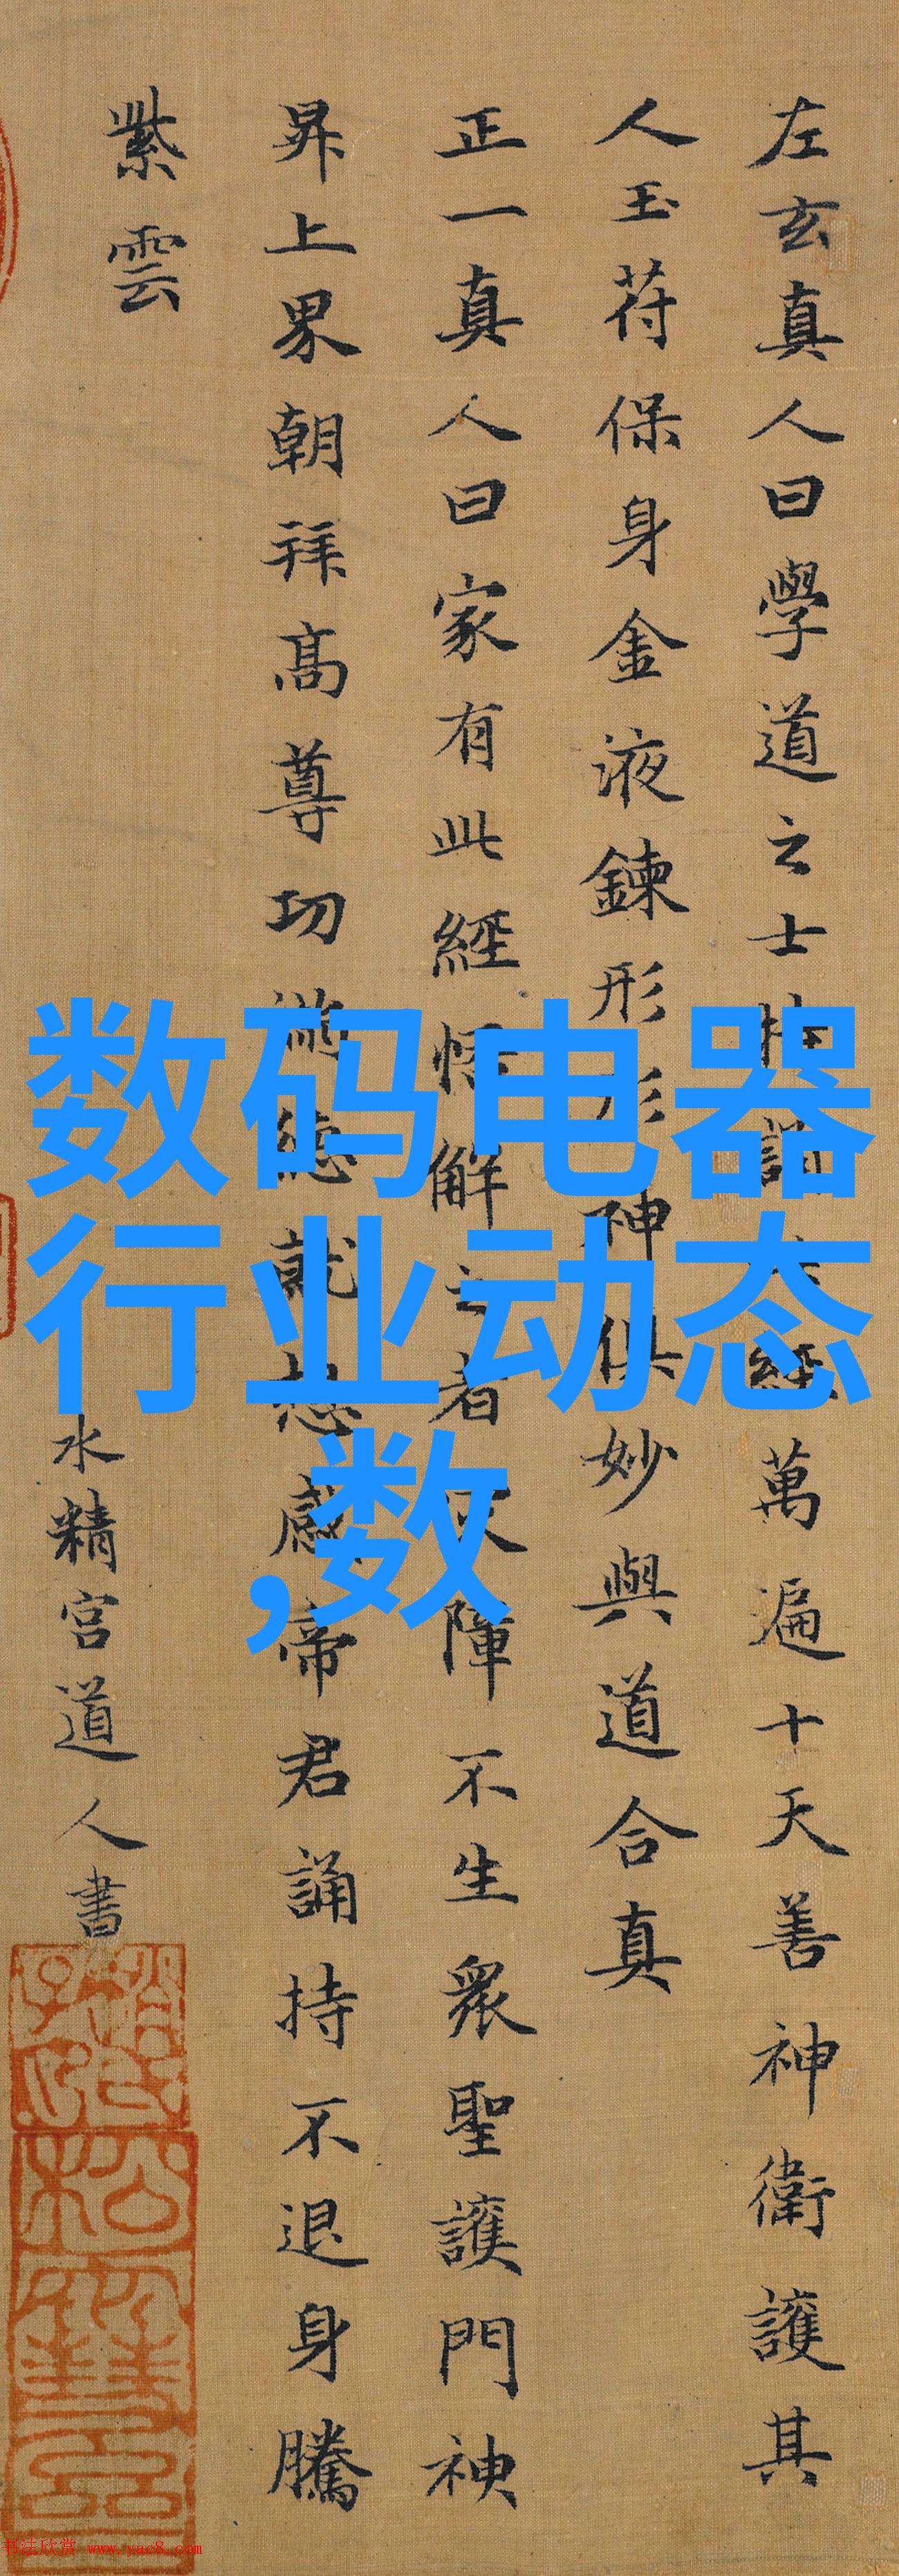 左玄真人曰學道之士 萬遍十天善神衛護其
人玉符保身金液鍊形形神俱妙與道合真
正一真人曰家有此經悟解之者 障不生衆聖護門神
昇上界朝拜高尊功 就 感帝君誦持不退身騰
紫雲
水精宮道人書
数码电器
行业动态
,数
书法欣赏 www.yac8.com